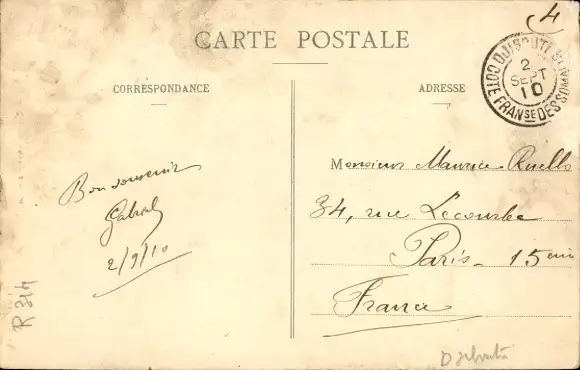 4
CARTE POSTALE
CORRESPONDANCE
ADRESSE
DJIBOUTI
2
SEPT
10
COTE FRANSE DES SOMALIS
Monsieur Maurice Ruello
34, rue Lecourbe
Paris - 15ème
France
Bon souvenir
Gabriel
2/9/10
R 314
Djibouti